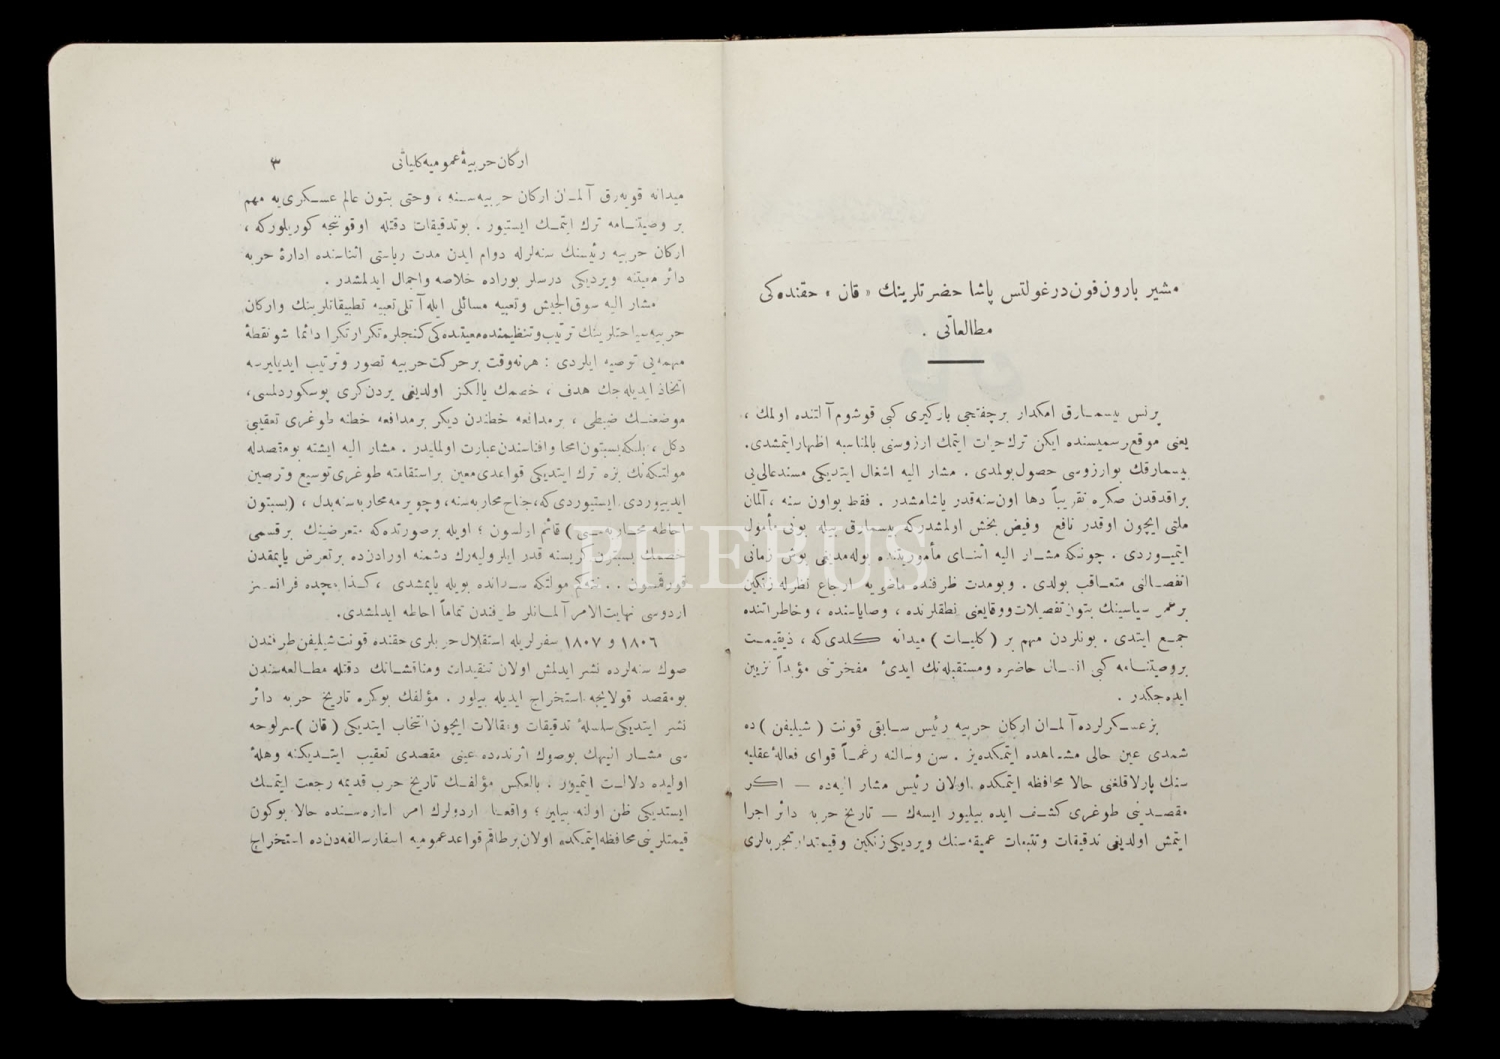 مشیر بارون فون در غولتس پاشا حضرتلرینك « قان » حقنده‌كی
مطالعاتی .
پرنس بیسمارق امكدار بر چفتجی بارگیری كبی قوشوم آلتنده اولمك ،
یعنی موقع رسمیسنده ایكن ترك حیات ایتمك آرزوسنی بالمناسبه اظهار ایتمشدی.
بیسمارقك بو آرزوسی حصول بولمدی . مشار الیه اشغال ایتدیكی مسند عالی‌یی
براقدقدن صكره تقریباً دها اون سنه قدر یاشامشدر . فقط بو اون سنه ، آلمان
ملتی ایچون اوقدر نافع وفیض بخش اولمشدركه بیسمارق بیله بونی مأمول
ایتمیوردی . چونكه مشار الیه اثنای مأموریتنده بوله‌مدیغی بوش زمانی
انفصالنی متعاقب بولدی . وبو مدت ظرفنده ماضی‌یه ارجاع نظرله زنكین
بر عمر سیاسینك بتون تفصیلات ووقایعنی نطقلرنده ، وصایاسنده ، وخاطراتنده
جمع ایتدی . بونلردن مهم بر ( كلیات ) میدانه كلدی‌كه ، ذیقیمت
بر وصیتنامه كبی انسال حاضره ومستقبله‌نك ابدی مفخرتنی مؤبداً تزیین
ایده‌جكدر .
بز عسكرلرده آلمان اركان حربیه رئیس سابقی قونت ( شلیفن ) ده
شمدی عین حالی مشاهده ایتمكده‌یز . سن وسالنه رغماً قوای فعالهٔ عقلیه
سنك پارلاقلغنی حالا محافظه ایتمكده اولان رئیس مشار الیه‌ده — اكر
مقصدینی طوغری كشف ایده بیلیور ایسه‌ك — تاریخ حربه دائر اجرا
ایتمش اولدیغی تدقیقات وتتبعات عمیقه‌سنك ویردیكی زنكین وقیمتدار تجربه‌لری
اركان حربیهٔ عمومیه كلیاتی ٣
میدانه قویه‌رق آلمان اركان حربیه‌سنه ، وحتی بتون عالم عسكری‌یه مهم
بر وصیتنامه ترك ایتمك ایستیور . بو تدقیقات دقتله اوقوننجه كوریلوركه ،
اركان حربیه رئیسنك سنه‌لرله دوام ایدن مدت ریاستی اثناسنده ادارهٔ حربه
دائر معیتنه ویردیكی درسلر بوراده خلاصه واجمال ایدلمشدر .
مشار الیه سوق الجیش وتعبیه مسائلی ایله آتلی تعبیه تطبیقاتلرینك واركان
حربیه سیاحتلرینك ترتیب وتنظیمنده معیتنده‌كی كنجلره تكرار تكرار دائما شو نقطهٔ
مهمه‌یی توصیه ایلردی : هر نه‌وقت بر حركت حربیه تصور وترتیب ایدیلیرسه
اتخاذ ایدیله‌جك هدف ، خصمك یالكز اولدیغی یردن كری پوسكوردلمسی،
موضعنك ضبطی ، بر مدافعه خطندن دیكر بر مدافعه خطنه طوغری تعقیبی
دكل ، بلكه بسبتون امحا وافناسندن عبارت اولملیدر . مشار الیه ایشته بو مقصدله
مولتكه‌نك بزه ترك ایتدیكی قواعدی معین بر استقامته طوغری توسیع وترصین
ایدییوردی. ایستیوردی‌كه، جناح محاربه‌سنه، وچویرمه محاربه‌سنه بدل ، (بسبتون
احاطه محاربه‌سی) قائم اولسون ؛ اویله بر صورتده‌كه متعرضینك بر قسمی
خصمك بسبتون كریسنه قدر ایلرولیه‌رك دشمنه اورادن‌ده بر تعرض یاپمقدن
قورقمسون ... نته‌كم مولتكه سدانده بویله یاپمشدی ، كذا مچده فرانسز
اردوسی نهایت الامر آلمانلر طرفندن تماماً احاطه ایدلمشدی.
١٨٠٦ و ١٨٠٧ سفرلریله استقلال حربلری حقنده قونت شلیفن طرفندن
صوك سنه‌لرده نشر ایدلمش اولان تنقیدات ومناقشاتك دقتله مطالعه‌سندن
بو مقصد قولایجه استخراج ایدیله بیلور . مؤلفك بو كره تاریخ حربه دائر
نشر ایتدیكی سلسلهٔ تدقیقات ومقالات ایچون انتخاب ایتدیكی ( قان ) سرلوحه
سی مشار الیهك بو صوك اثرنده‌ده عینی مقصدی تعقیب ایتدیكنه وهلهٔ
اولیده دلالت ایتمیور . بالعكس مؤلفك تاریخ حرب قدیمه رجعت ایتمك
ایستدیكی ظن اولنه بیلیر ؛ واقعا اردولرك امر اداره‌سنده حالا بوكون
قیمتلرینی محافظه ایتمكده اولان بر طاقم قواعد عمومیه اسفار سالفه‌دن‌ده استخراج
PHEBUS